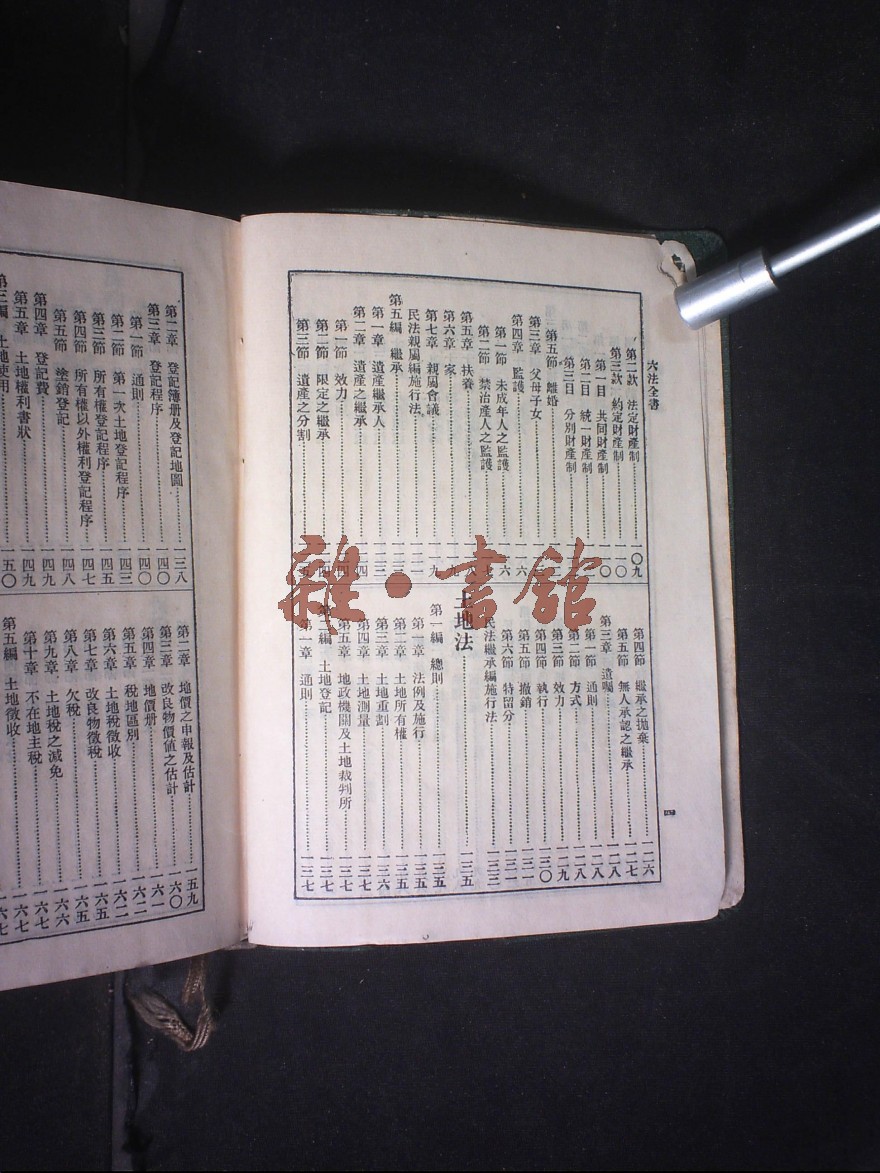 六法全書
第二款 法定財產制
第三款 約定財產制
第一目 共同財產制
第二目 統一財產制
第三目 分別財產制
第五節 離婚
第三章 父母子女
第四章 監護
第一節 未成年人之監護
第二節 禁治產人之監護
第五章 扶養
第六章 家
第七章 親屬會議
民法親屬編施行法
第五編 繼承
第一章 遺產繼承人
第二章 遺產之繼承
第一節 效力
第二節 限定之繼承
第三節 遺產之分割
第四節 繼承之拋棄 一二六
第五節 無人承認之繼承 一二七
第三章 遺囑 一二八
第一節 通則 一二八
第二節 方式 一二八
第三節 效力 一二九
第四節 執行 一三〇
第五節 撤銷
第六節 特留分
民法繼承編施行法 一三三
土地法 一三五
第一編 總則 一三五
第一章 法例及施行 一三五
第二章 土地所有權 一三五
第三章 土地重劃 一三六
第四章 土地測量 一三七
第五章 地政機關及土地裁判所 一三七
第二編 土地登記 一三七
第一章 通則 一三七
第二章 登記簿册及登記地圖 一三八
第三章 登記程序 一四〇
第一節 通則 一四〇
第二節 第一次土地登記程序 一四三
第三節 所有權登記程序 一四五
第四節 所有權以外權利登記程序 一四七
第五節 塗銷登記 一四八
第四章 登記費 一四九
第五章 土地權利書狀 一四九
第三編 土地使用 一五〇
第二章 地價之申報及估計 一五九
第三章 改良物價值之估計 一六〇
第四章 地價册 一六一
第五章 稅地區別 一六二
第六章 土地稅徵收 一六二
第七章 改良物徵稅 一六五
第八章 欠稅 一六六
第九章 土地稅之減免 一六七
第十章 不在地主稅 一六七
第五編 土地徵收 一六七
雜·書館